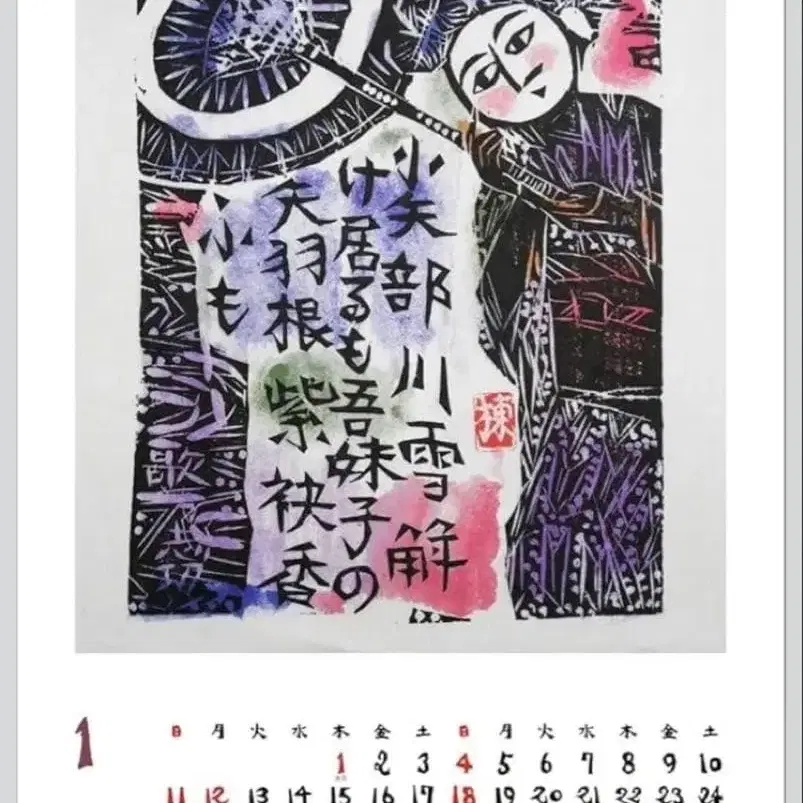 小矢部川雪解
け居るも吾妹子の
矢羽根紫袂香
ふも
棟
歌
1
日 月 火 水 木 金 土 日 月 火 水 木 金 土
1 2 3 4 5 6 7 8 9 10
11 12 13 14 15 16 17 18 19 20 21 22 23 24